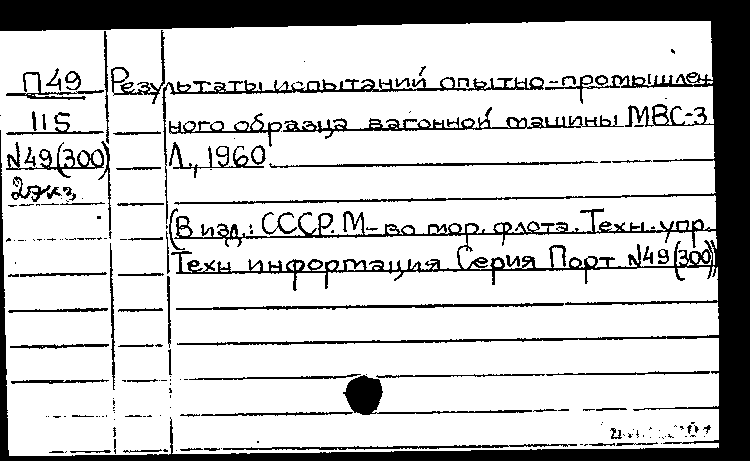 П49 Результаты испытаний опытно-промышлен
115 ного образца вагонной машины МВС-3
N49(300) Л., 1960.
2экз
(В изд.: СССР. М-во мор. флота. Техн. упр.
Техн информация Серия Порт N49(300))